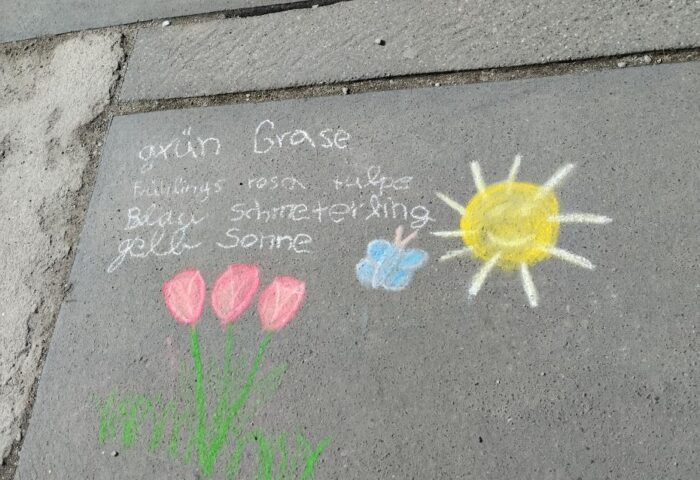 grün Grase
Frühlings rosa tulpe
Blau schmeterling
gelb Sonne